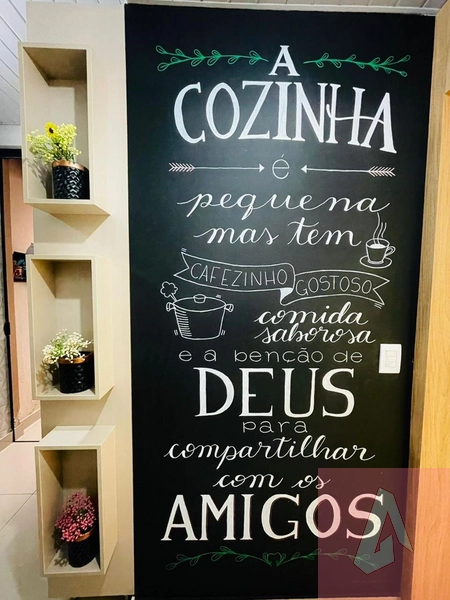 A
COZINHA
é
pequena
mas tem
CAFEZINHO GOSTOSO
comida
saborosa
e a benção de
DEUS
para
compartilhar
com os
AMIGOS